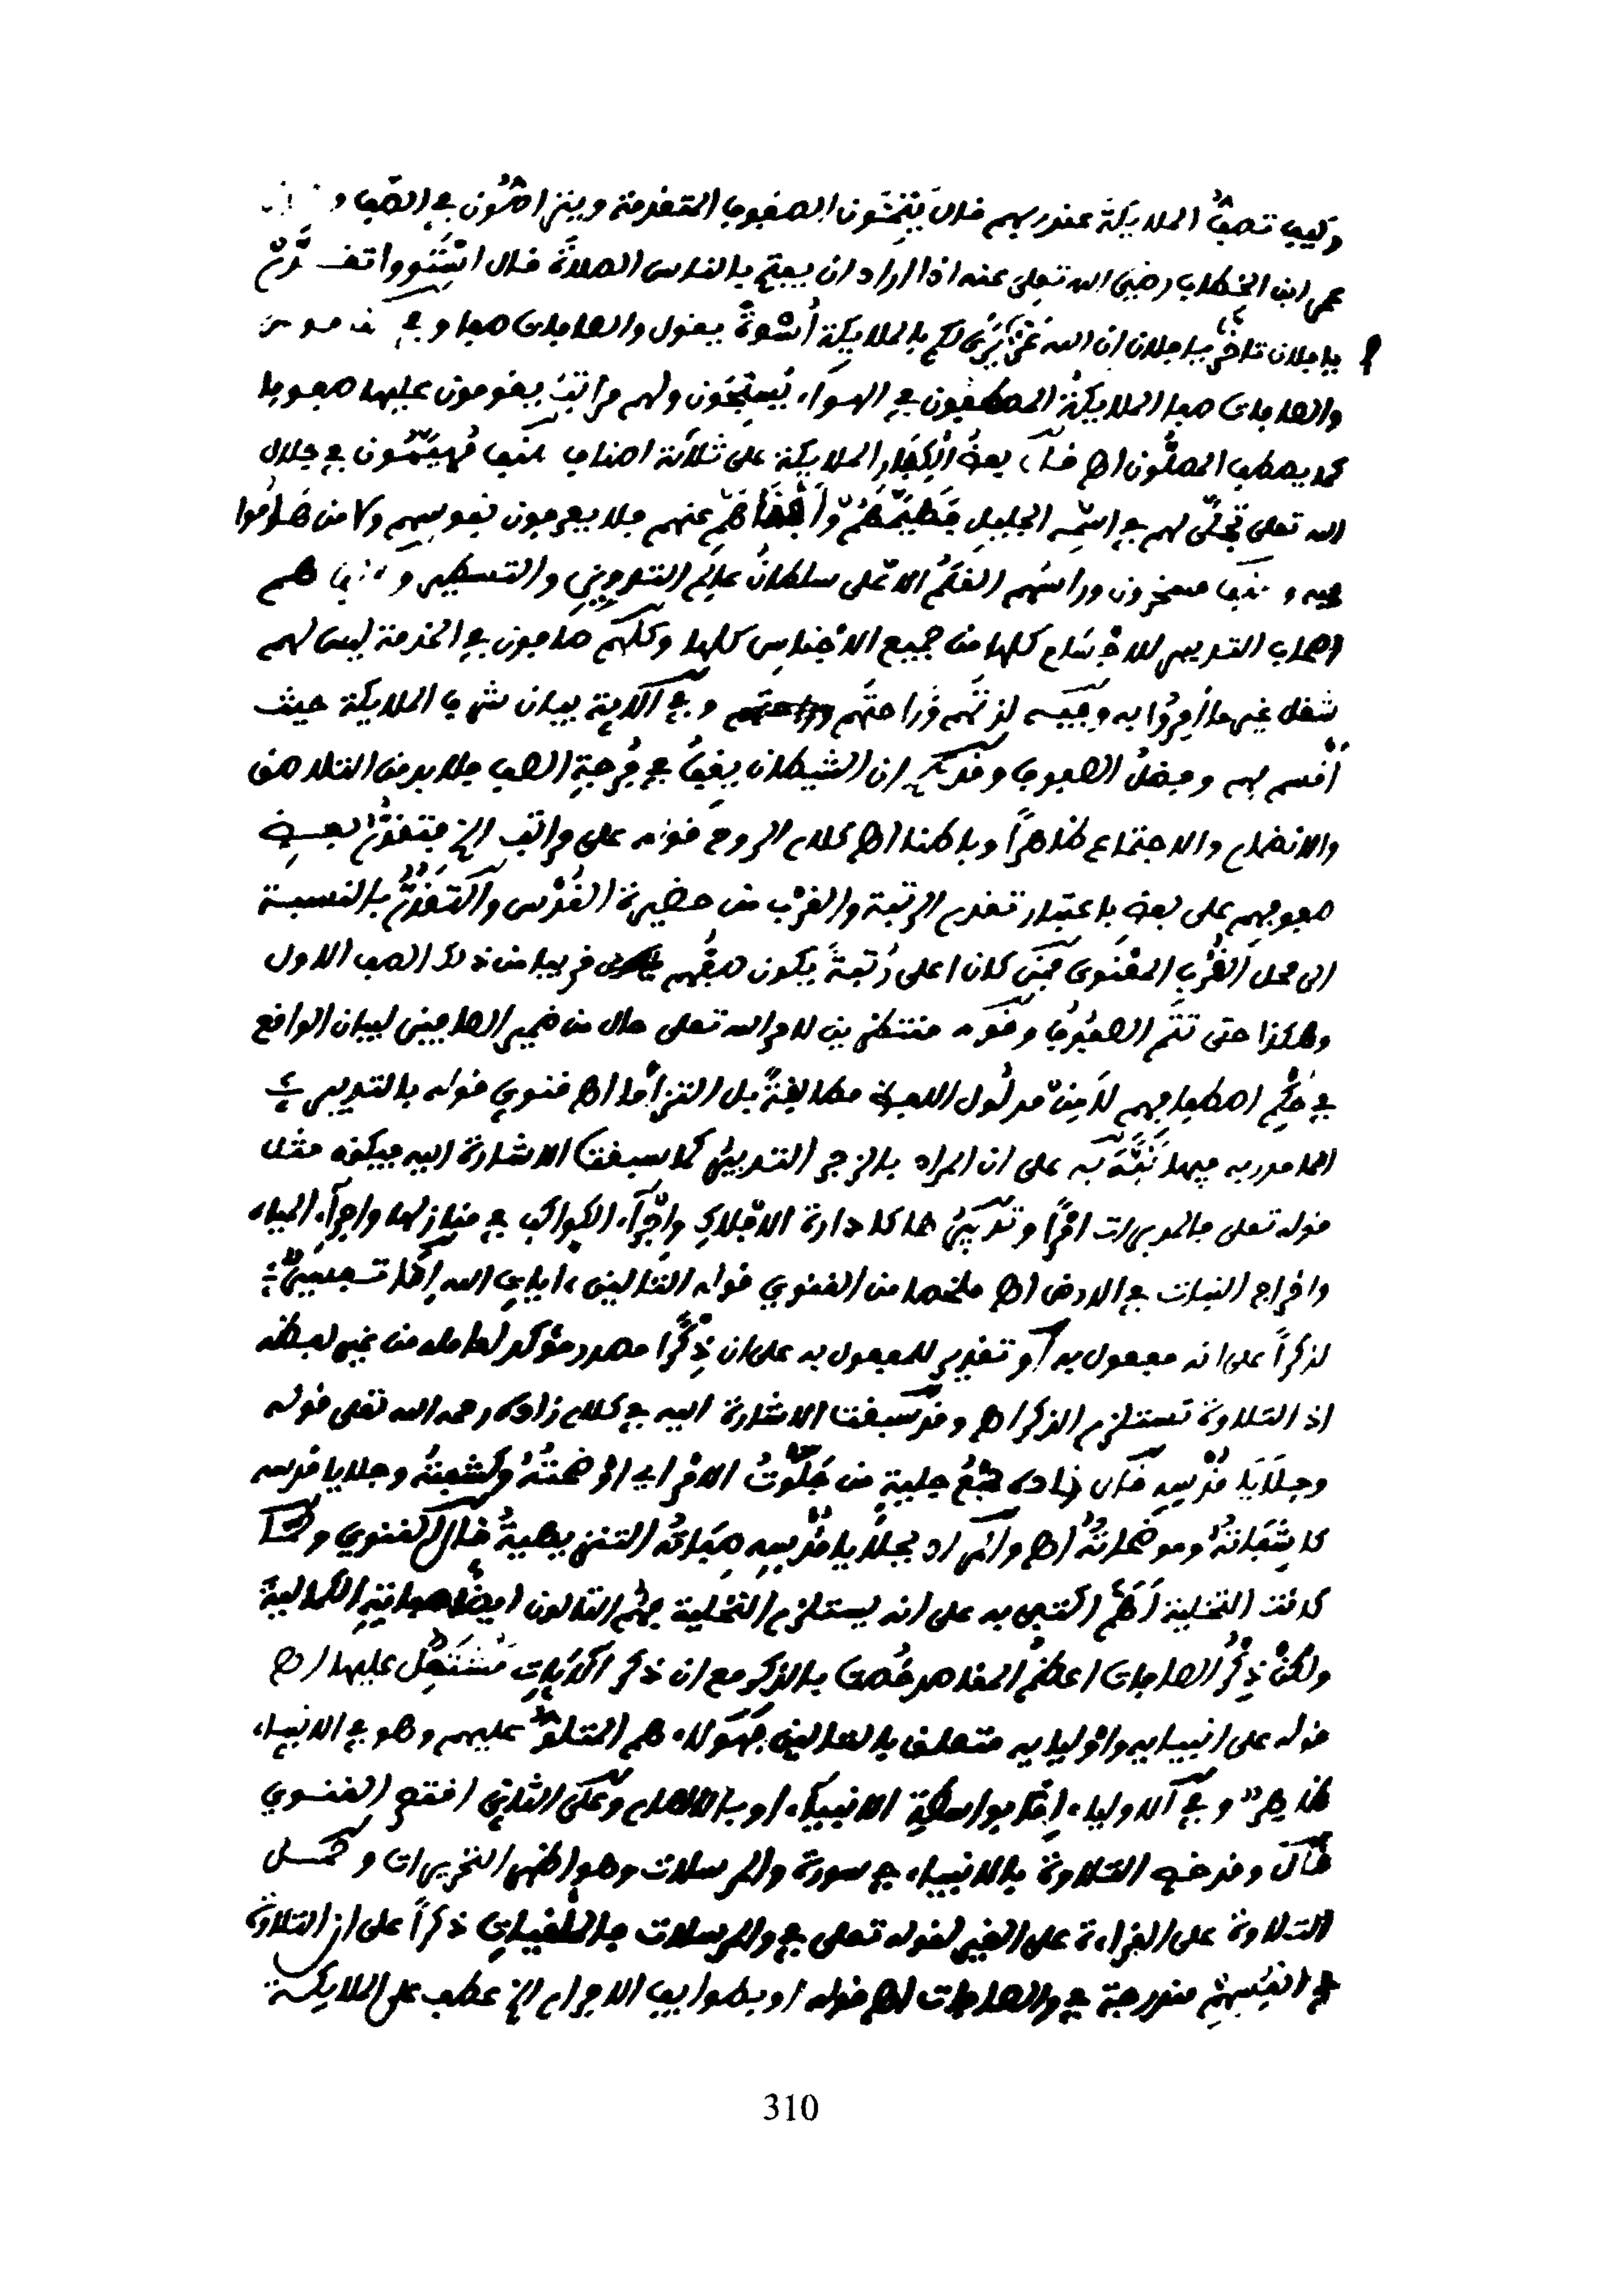 وكيف تصف الملايكة عند ربهم قال يتمون الصفوف المتقدمة ويتراصون في الصف و
عمر ابن الخطاب رضي الله تعلى عنه اذا اراد ان يفتح بالناس الصلاة قال استووا تقدم
يا فلان تاخر يا فلان ان الله عز يرى لكم بالملايكة أسوة يقول والصافات صفا وفي
والصافات صفا الملايكة المصطفون في الهواء يسبحون ولهم مراتب يقومون عليها صفوفا
كما يصطف المصلون اهـ قال بعض الكبار الملايكة على ثلاثة اصناف صنف مهيمون في جلال
الله تعلى تجلى لهم في اسمه الجليل فهيمهم وأفناهم عنهم فلا يعرفون نفوسهم ولا من هاموا
فيه وصنف مسخرون وراسهم القلم الاعلى سلطان عالم التدوين والتسطير وصنف هم
اصحاب التدبير للاجسام كلها من جميع الاجناس كلها وكلهم صافون في الخدمة ليس لهم
شغل غير ما أمروا به وفيه لذتهم وراحتهم وفي الاية بيان شرف الملايكة حيث
أقسم بهم وفضل الصفوف وقد ان الشيطان يقف في فرجة الصف فلا بد من التلاصق
والانضمام والاجتماع ظاهراً وباطنا اهـ كلام الروح قوله على مراتب الخ فتتقدم بعض
صفوفهم على بعض باعتبار تقدم الرتبة والقرب من حضيرة القدس والتقدم بالنسبة
الى محل القرب المعنوى فمن كان اعلى رتبة يكون صفهم قريبا من ذلك الصف الاول
وهكذا حتى تتم الصفوف وقوله منتظرين لامر الله تعلى حال من ضمير الصافين لبيان الواقع
في حكم اصطفافهم لا من مدلول اللفظ مطابقة بل التزاما اهـ قنوي قوله بالتدبير
المامور به فيها نبه به على ان المراد بالزجر التدبير كما سبقت الاشارة اليه فيكون مثل
قوله تعلى فالمدبرات امراً وتدبير هما كادارة الافلاك واجراء الكواكب في منازلها واجراء المياه
واخراج النبات في الارض اهـ ملخصا من القنوي قوله التالين ايات الله اما تفسير
لذكراً على انه مفعول به أو تقدير للمفعول به على ان ذكراً مصدر مؤكد لعامله من غير لفظه
اذ التلاوة تستلزم الذكر اهـ وقد سبقت الاشارة اليه في كلام زاده رحمه الله تعلى قوله
وجلايا قدسه قال زاده جمع جلية من جلوت الامر اي اوضحته وكشفته وجلايا قدسه
كاشفاته وموضحاته اهـ والمراد بجلايا قدسه صفاته التنزيهية قال القنوي ولما
كانت التخلية أهم اكتفى به على انه يستلزم التحلية فهم التالون ايضا صفاته الكمالية
ولكن ذكر الصافات اعظم المقاصد خصت بالذكر مع ان ذكر الايات مشتمل عليها اهـ
قوله على انبيايه واوليايه متعلق بالتالين فهؤلاء هم المتلو عليهم وهو في الانبياء
ظاهر وفي الاولياء اما بواسطة الانبياء او بالالهام وعلى الثاني اقتصر القنوي
قال وقد خص التلاوة بالانبياء في سورة والمرسلات وهو اظهر التحريرات وحمل
التلاوة على القراءة على الغير لقوله تعلى في والمرسلات فالملقيات ذكراً على ان التلاوة
في انفسهم مندرجة في والصافات اهـ قوله او بطوايف الاجرام الخ عطف على الملايكة
310